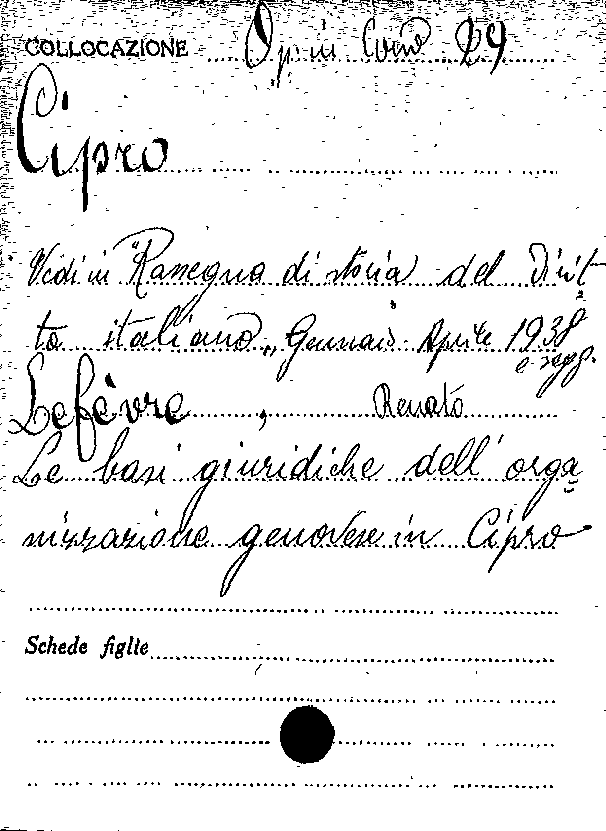 COLLOCAZIONE Op. in Cons 29
Cipro
Vedi in "Rassegna di storia del Dirit-
to italiano" Gennaio Aprile 1938
e segg.
Lefèvre, Renato
Le basi giuridiche dell'orga-
nizzazione genovese in Cipro
Schede figlie